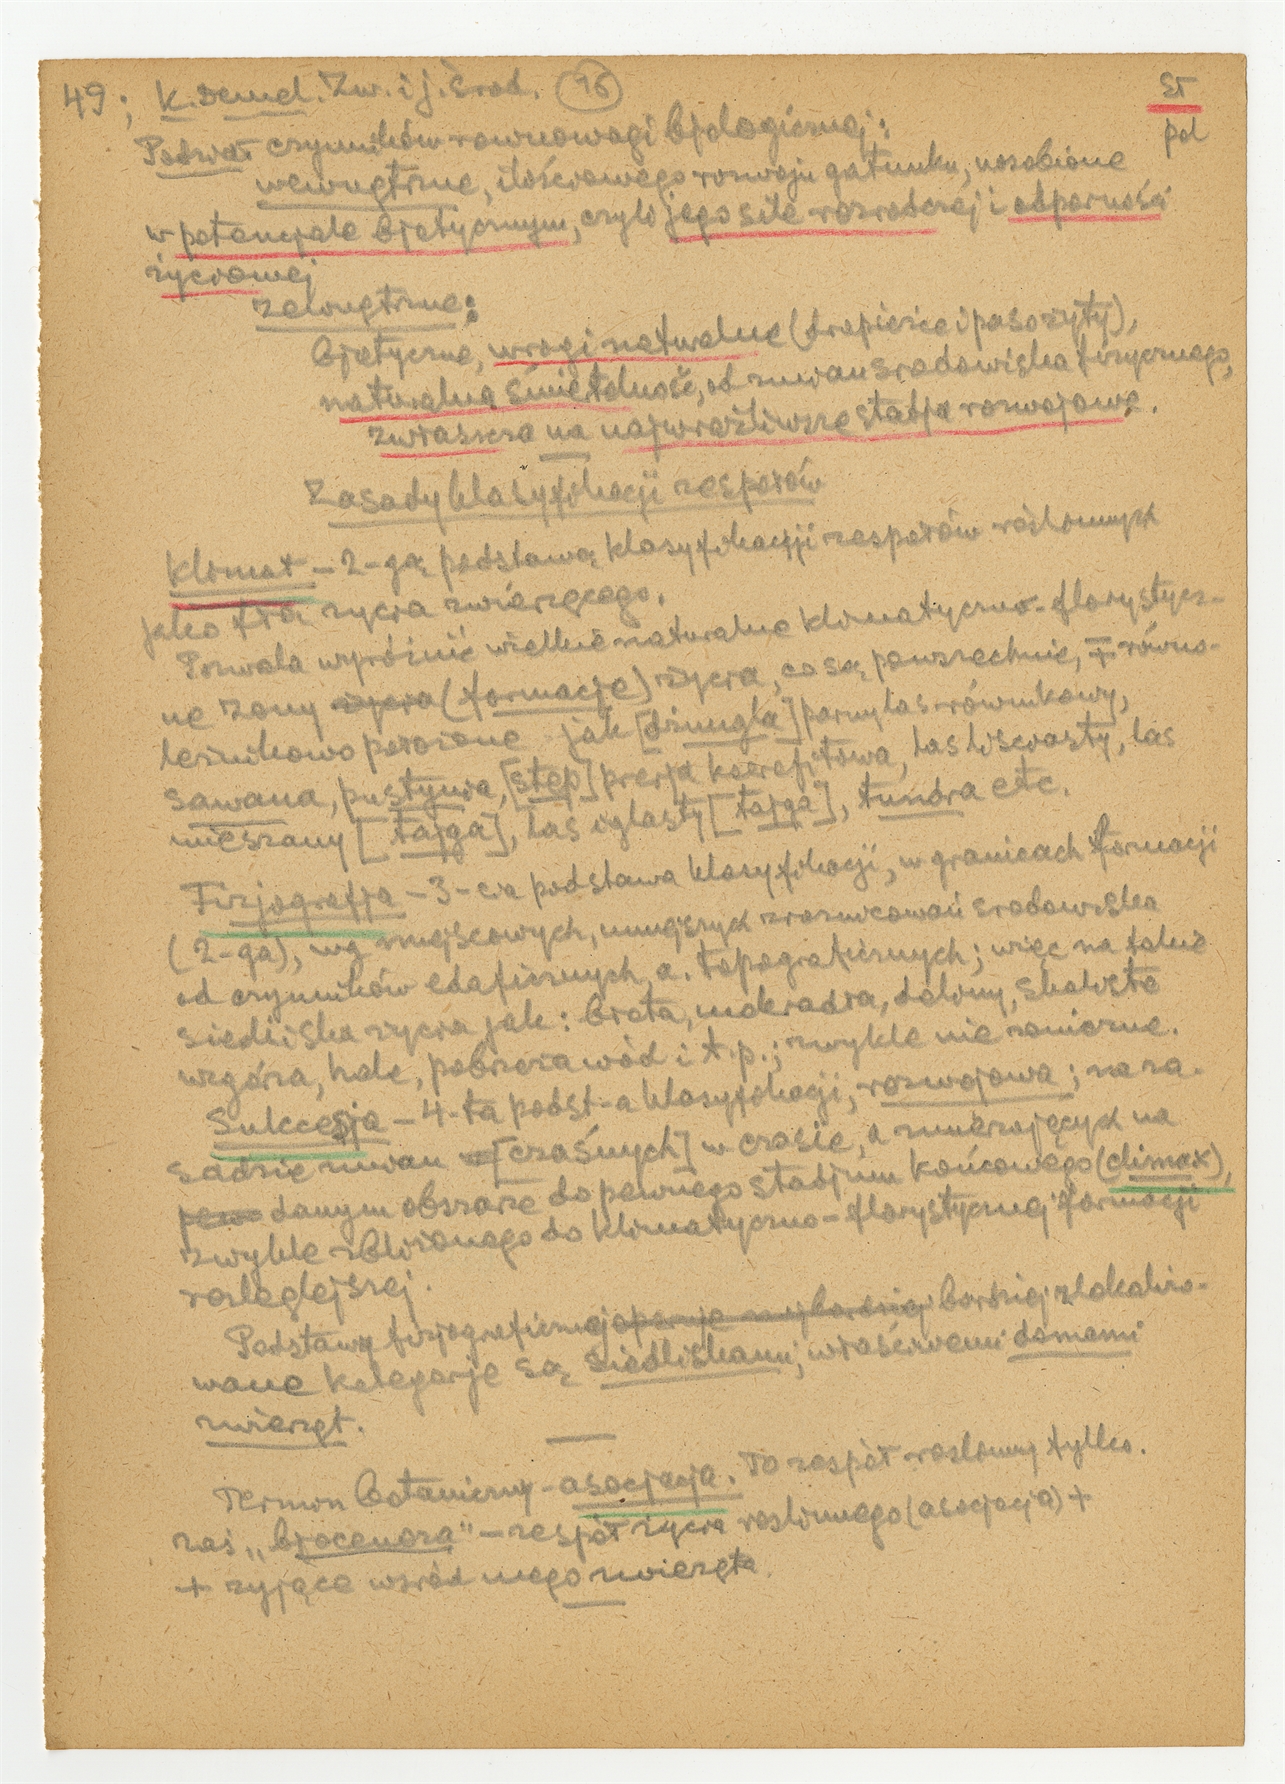 49; K. Demel. Zw. i j. środ. 96 st
pol
Podział czynników równowagi bjologicznej:
wewnętrzne, ilościowego rozwoju gatunku, uosobione
w potencjale bjotycznym, czyli jego sile rozrodczej i odporności
życiowej
zewnętrzne:
bjotyczne, wrogi naturalne (drapieżce i pasożyty),
naturalną śmiertelność, od zmian środowiska fizycznego,
zwłaszcza na najwrażliwsze stadja rozwojowe.
Zasady klasyfikacji zespołów
Klimat – 2-gą podstawą klasyfikacji zespołów roślinnych
jako tła życia zwierzęcego.
Pozwala wyróżnić wielkie naturalne klimatyczno-florystycz-
ne zony życia (formacje) życia, co są powszechnie, ∓ równo-
leżnikowo położone jak [dżungla] parny las równikowy,
sawana, pustynia, [step] prerja kserofitowa, las liściasty, las
mieszany [tajga], las iglasty [tajga], tundra etc.
Fizjografja – 3-cia podstawa klasyfikacji, w granicach formacji
(2-ga), wg miejscowych, mniejszych zróżnicowań środowiska
od czynników edaficznych, a. topograficznych; więc na takie
siedliska życia jak: błota, mokradła, doliny, skaliste
wzgórza, hale, pobrzeża wód i t.p.; zwykle nie zmienne.
Sukcesja – 4-ta podst-a klasyfikacji, rozwojowa; na za-
sadzie zmian [czaśnych] w czasie, a zmierzających na
pew danym obszarze do pewnego stadjum końcowego (climax),
zwykle zbliżonego do klimatyczno-florystycznej formacji
rozleglejszej.
Podstawy fizjograficznej operuje bardziej zlokalizo-
wane kategorje są siedliskami, właściwemi domami
zwierząt.
Termin botaniczny – asocjacja. To zespół roślinny tylko.
zaś „bjocenoza" – zespół życia roślinnego (asocjacja) +
+ żyjące wśród niego zwierzęta.